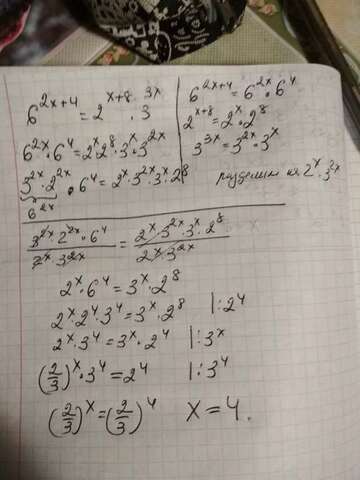 6^{2x+4} = 2^{x+8} · 3^{3x}
6^{2x} · 6^4 = 2^x · 2^8 · 3^x · 3^{2x}
3^{2x} · 2^{2x} · 6^4 = 2^x · 3^{2x} · 3^x · 2^8
6^{2x}
6^{2x+4} = 6^{2x} · 6^4
2^{x+8} = 2^x · 2^8
3^{3x} = 3^{2x} · 3^x
разделим на 2^x · 3^{2x}
\frac{3^{2x} · 2^{2x} · 6^4}{2^x · 3^{2x}} = \frac{2^x · 3^{2x} · 3^x · 2^8}{2^x · 3^{2x}}
2^x · 6^4 = 3^x · 2^8
2^x · 2^4 · 3^4 = 3^x · 2^8 |: 2^4
2^x · 3^4 = 3^x · 2^4 |: 3^x
(\frac{2}{3})^x · 3^4 = 2^4 |: 3^4
(\frac{2}{3})^x = (\frac{2}{3})^4 x = 4.